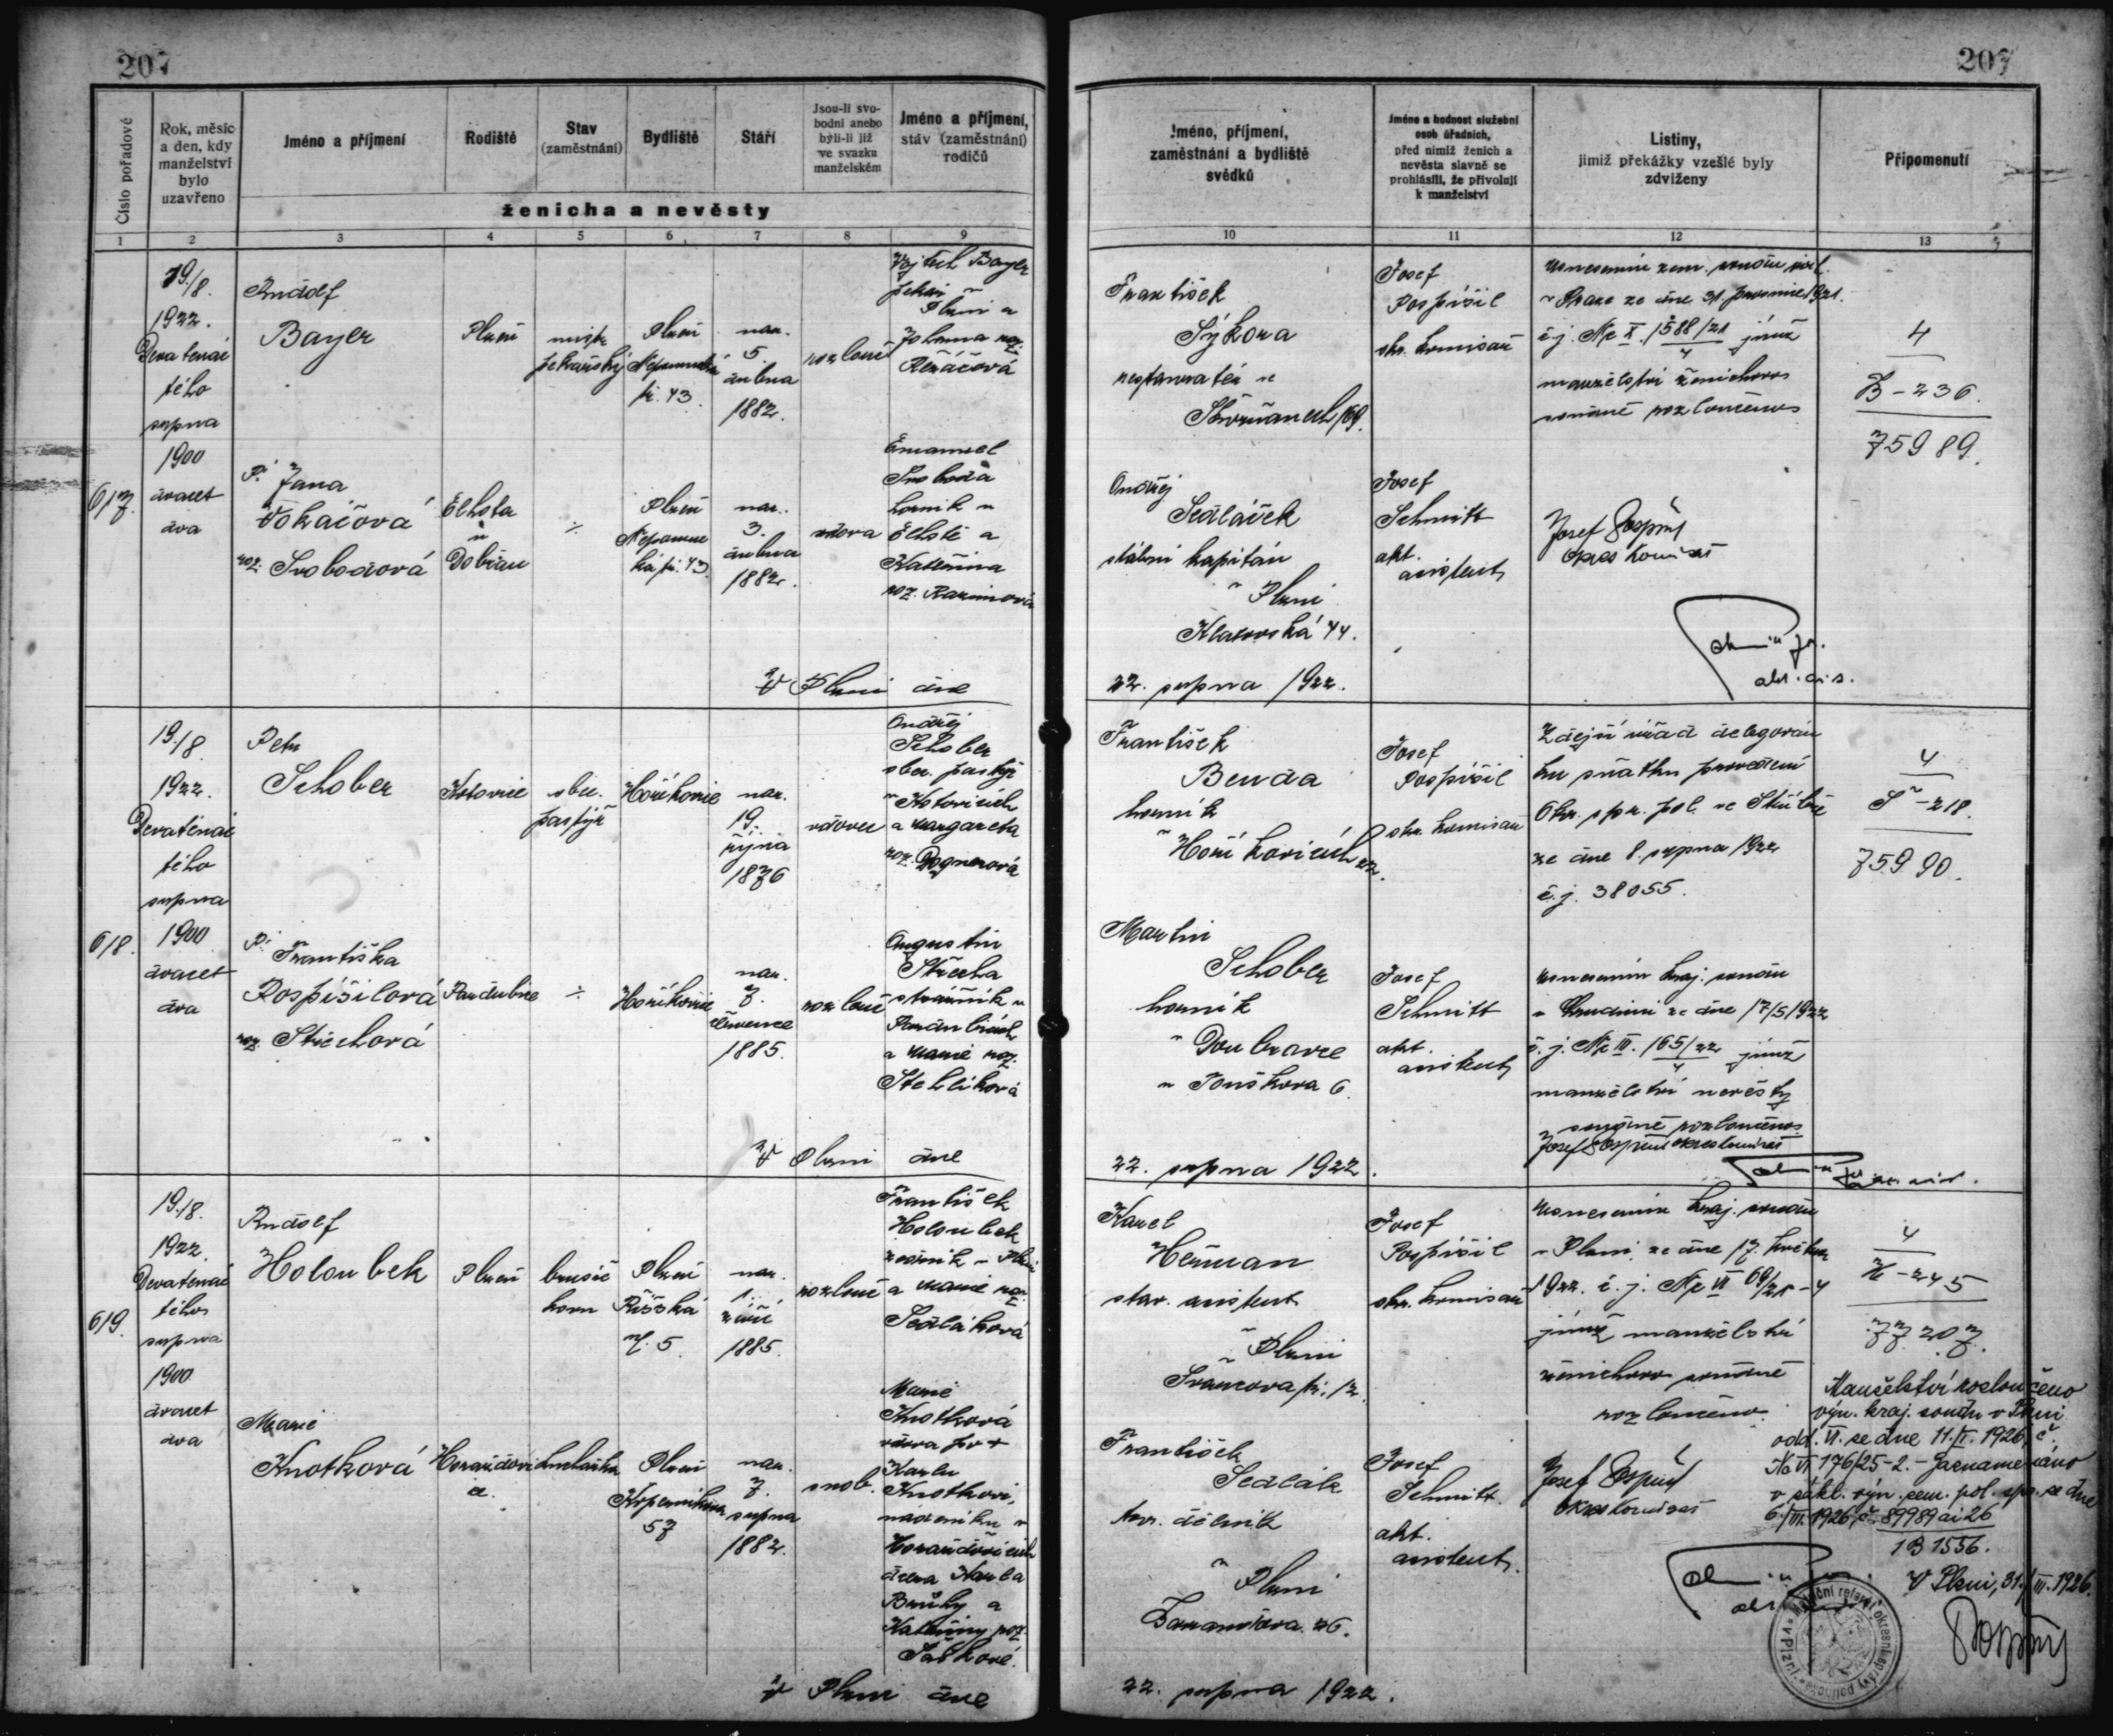 207
207
Číslo pořadové
Rok, měsíc
a den, kdy
manželství
bylo
uzavřeno
Jméno a příjmení
Rodiště
Stav
(zaměstnání)
Bydliště
Stáří
Jsou-li svo-
bodni anebo
byli-li již
ve svazku
manželském
Jméno a příjmení,
stáv (zaměstnání)
rodičů
ženicha a nevěsty
1 2 3 4 5 6 7 8 9
Jméno, příjmení,
zaměstnání a bydliště
svědků
Jméno a hodnost služební
osob úřadních,
před nimiž ženich a
nevěsta slavně se
prohlásili, že přivolují
k manželství
Listiny,
jimiž překážky vzešlé byly
zdviženy
Připomenutí
10 11 12 13
617.
19./8.
1922.
Devatenác
tého
srpna
1900
dvacet
dva
Rudolf
Bayer
Plzeň
mistr
pekařský
Plzeň
Nepomucká
či. 43.
nar.
5.
dubna
1882.
rozlouč
Vojtěch Bayer
pekař
Plzni a
Johanna roz.
Řezáčová
Pí Jana
Vokáčová
roz. Svobodová
Elhota
u
Dobřan
÷
Plzeň
Nepomuc
ká či. 43.
nar.
3.
dubna
1882.
vdova
Emanuel
Svoboda
horník v
Elhotě a
Kateřina
roz.
František
Sýkora
restauratér ve
Skvrňanech 169.
Josef
Pospíšil
okr. komisař
Usnesením zem. soudu civil.
v Praze ze dne 31. prosince 1921.
č.j. Nc X. 1588/21
4
jímž
manželství ženichovo
soudně rozloučeno
4
B – 236.
75989.
Ondřej
Sedláček
štábní kapitán
v Plzni
Klatovská 44.
Josef
Schmitt
akt.
asistent
Josef Pospíšil
okres komisař
akt. as.
V Plzni dne
22. srpna 1922.
618.
19./8
1922.
Devatenác
tého
srpna
1900
dvacet
dva
Petr
Schober
Kotovice
obec.
pastýř
Hořikovice
nar.
19.
října
1876
vdovec
Ondřej
Schober
obec. pastýř
v Kotovicích
a Margareta
roz. Wagnerová
Pí Františka
Pospíšilová
roz. Střechová
Pardubice
÷
Hořikovice
nar.
7.
července
1885.
rozlouč
Augustin
Střecha
strážník v
Pardubicích
a Marie roz.
Stehlíková
František
Benda
horník
v Hořikovicích 22.
Josef
Pospíšil
okr. komisař
Zdejší úřad delegován
ku sňatku provedení
Okr. spr. pol. ve Stříbře
ze dne 8. srpna 1922
č.j. 38055.
4
Š – 218.
75990.
Martin
Schober
horník
v Doubravce
u Touškova 6.
Josef
Schmitt
akt.
asistent
Usnesením kraj. soudu
v Chrudimi ze dne 17/5 1922
č.j. Nc III. 165/22
4
jímž
manželství nevěsty
soudně rozloučeno.
Josef Pospíšil okres komisař
V Plzni dne
22. srpna 1922.
619.
19./8.
1922.
Devatenác
tého
srpna
1900
dvacet
dva
Rudolf
Holoubek
Plzeň
brusič
kovu
Plzeň
Říšská
čj. 5
nar.
1.
září
1885.
rozlouč
František
Holoubek
zedník v Plzni
a Marie roz.
Sedláková
Marie
Knotková
Horažďovi
ce.
kuchařka
Plzeň
Koperníkova
57
nar.
7.
srpna
1882.
svob.
Marie
Knotková
vdova po †
Karlu
Knotkovi,
nádeníku v
Horažďovicích
dcera Karla
a
Kateřiny roz.
Karel
Heřman
stav. asistent
v Plzni
či. 12.
Josef
Pospíšil
okr. komisař
Usnesením kraj. soudu
v Plzni ze dne 17. května
1922. č.j. Nc VI 69/21 – 4
jímž manželství
ženichovo soudně
rozloučeno.
4
H – 245
77207.
František
Sedlák
tov. dělník
v Plzni
26.
Josef
Schmitt
akt.
asistent.
Josef Pospíšil
okres komisař
Manželství rozloučeno
výn. kraj. soudu v Plzni
odd. VI. ze dne 11./I. 1926 č.
Nc VI 176/25-2. – Zaznamenáno
v zákl. výn. zem. pol. spr. ze dne
6./III. 1926, č. 89989 ai 26
1B 1556.
V Plzni, 31./III. 1926.
Pospíšil
V Plzni dne
22. srpna 1922.